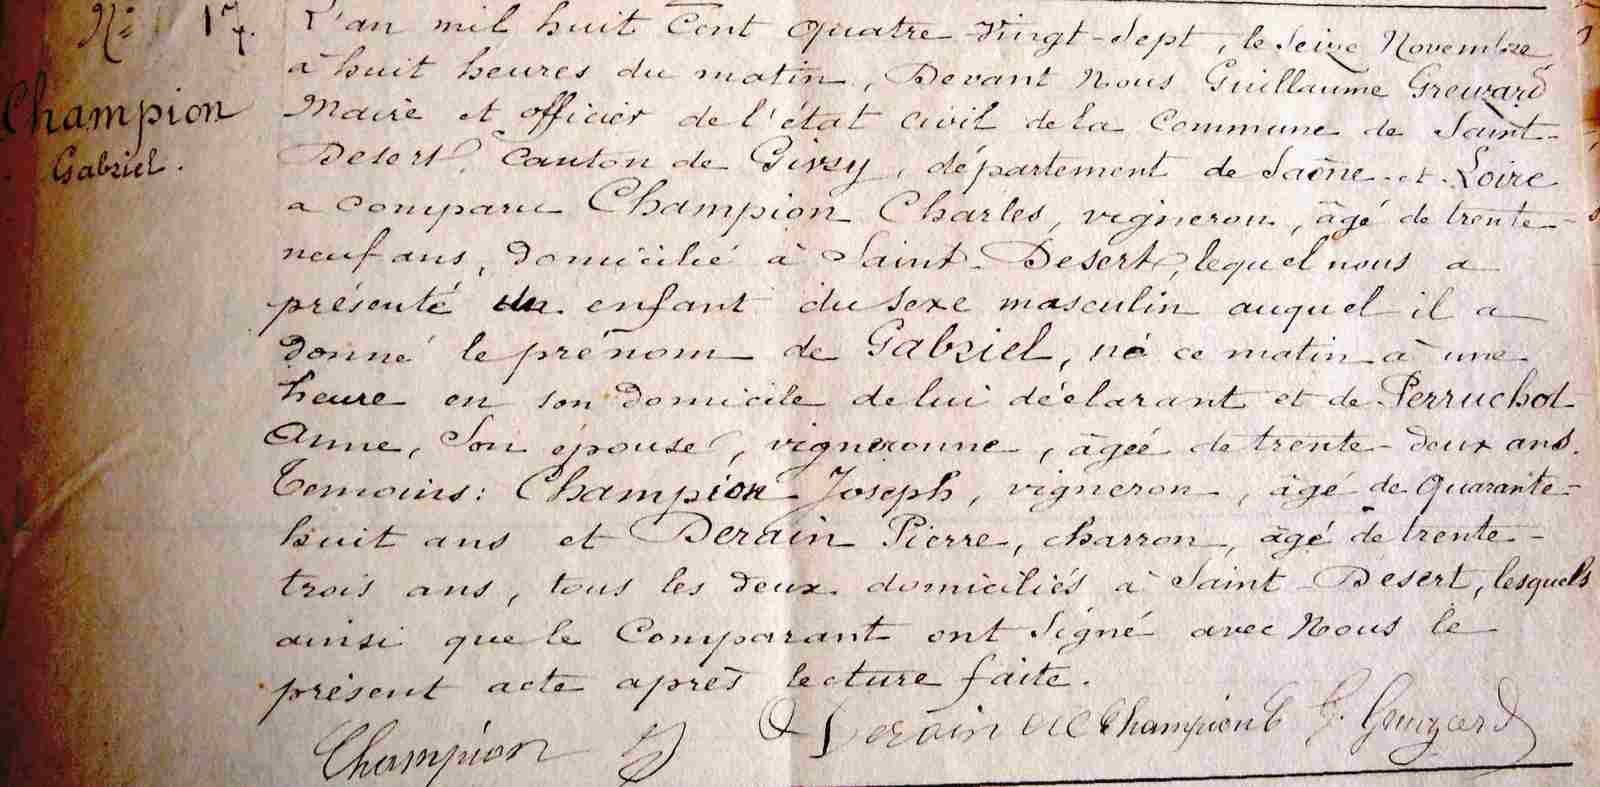 N° 17.
Champion
Gabriel.
L'an mil huit Cent quatre-vingt-sept, le seize Novembre
à huit heures du matin, Devant Nous Guillaume Greuzard
Maire et officier de l'état civil de la Commune de Saint-
Desert, Canton de Givry, département de Saône-et-Loire
a comparu Champion Charles, vigneron, âgé de trente-
neuf ans, domicilié à Saint-Desert, lequel nous a
présenté un enfant du sexe masculin auquel il a
donné le prénom de Gabriel, né ce matin à une
heure en son domicile de lui déclarant et de Perruchot
Anne, son épouse, vigneronne, âgée de trente-deux ans.
Temoins: Champion Joseph, vigneron, âgé de quarante-
huit ans et Derain Pierre, charron, âgé de trente-
trois ans, tous les deux domiciliés à Saint-Desert, lesquels
ainsi que le Comparant ont signé avec Nous le
présent acte après lecture faite.
Champion Derain Champion G. Greuzard